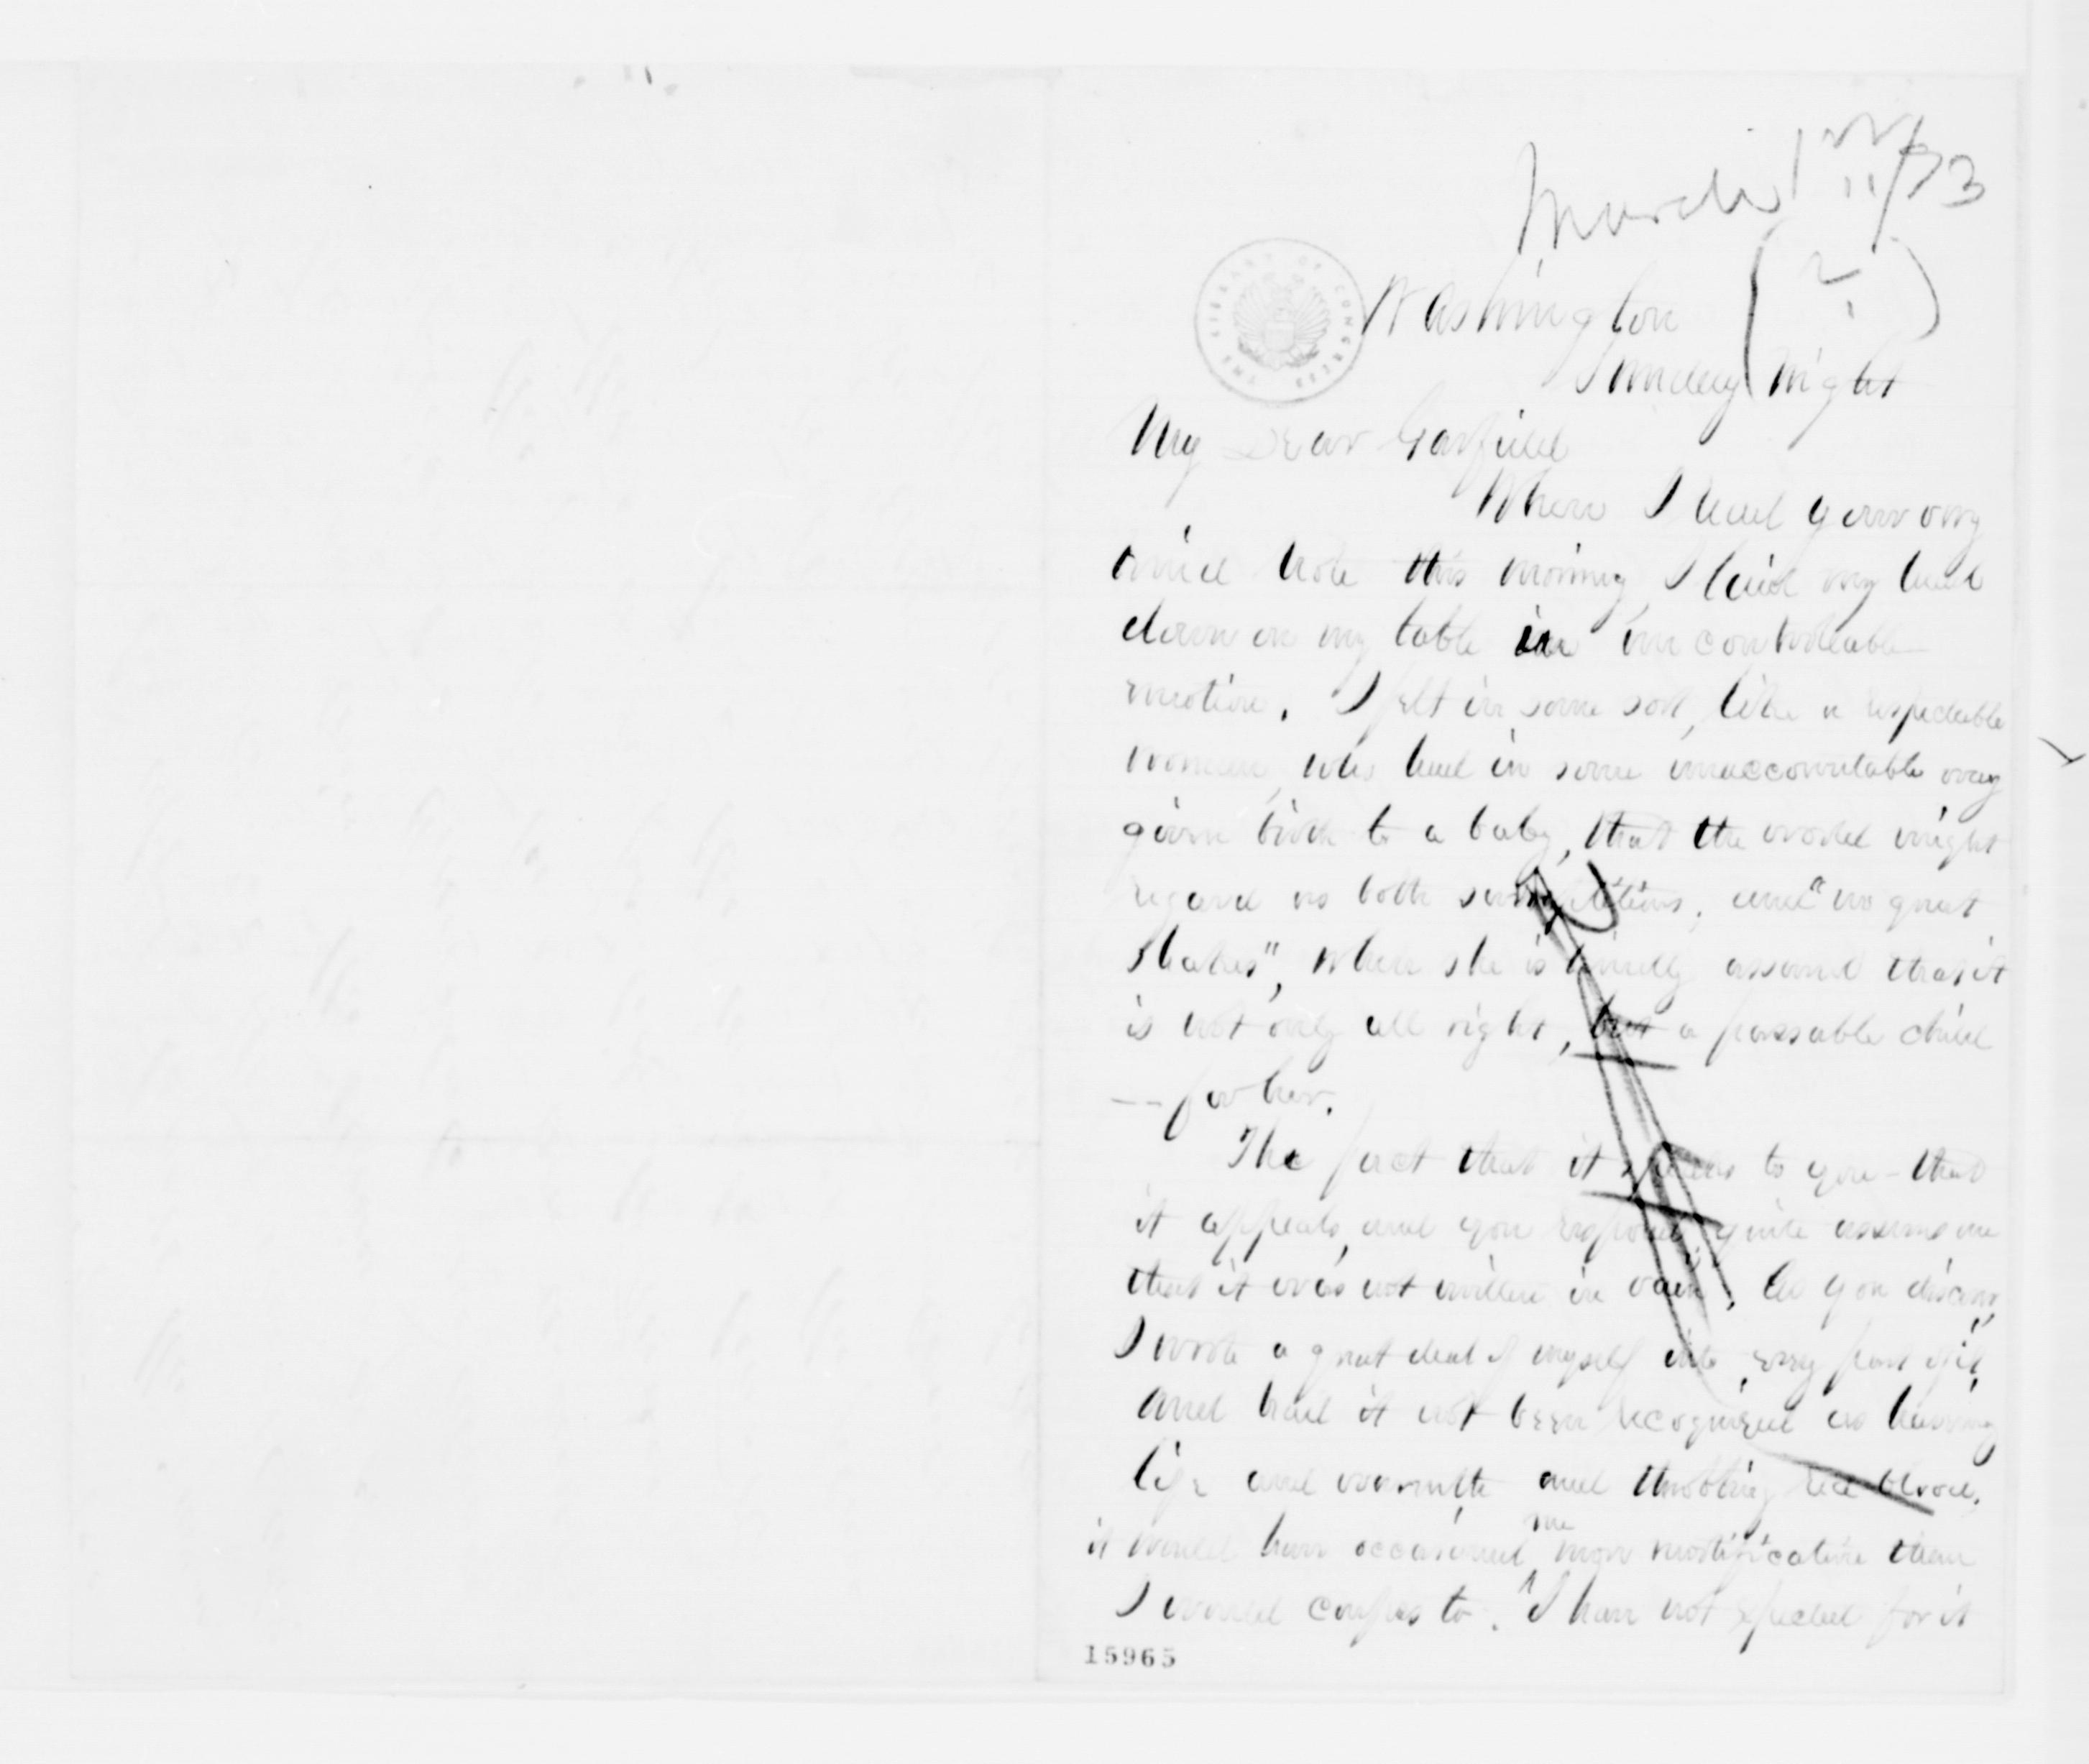 March 11/73
(?)
THE LIBRARY OF CONGRESS
Washington
Sunday night
My Dear Garfield
When I read your very
kind note this morning, I laid my head
down on my table in uncontroleable
emotion. I felt in some sort, like a respectable
woman, who had in some unaccountable way
given birth to a baby, that the world might
regard as both and "no great
shakes", when she is kindly assured that it
is not only all right, but a passable child
-- for her.
The fact that it speaks to you - that
it appeals, and you respond quite assures me
that it was not written in vain. As you discern,
I wrote a great deal of myself into every part of it,
and had it not been recognized as having
life and warmth and throbbing red blood,
it would have occasioned me more mortification than
I would confess to. I have not expected for it
15965